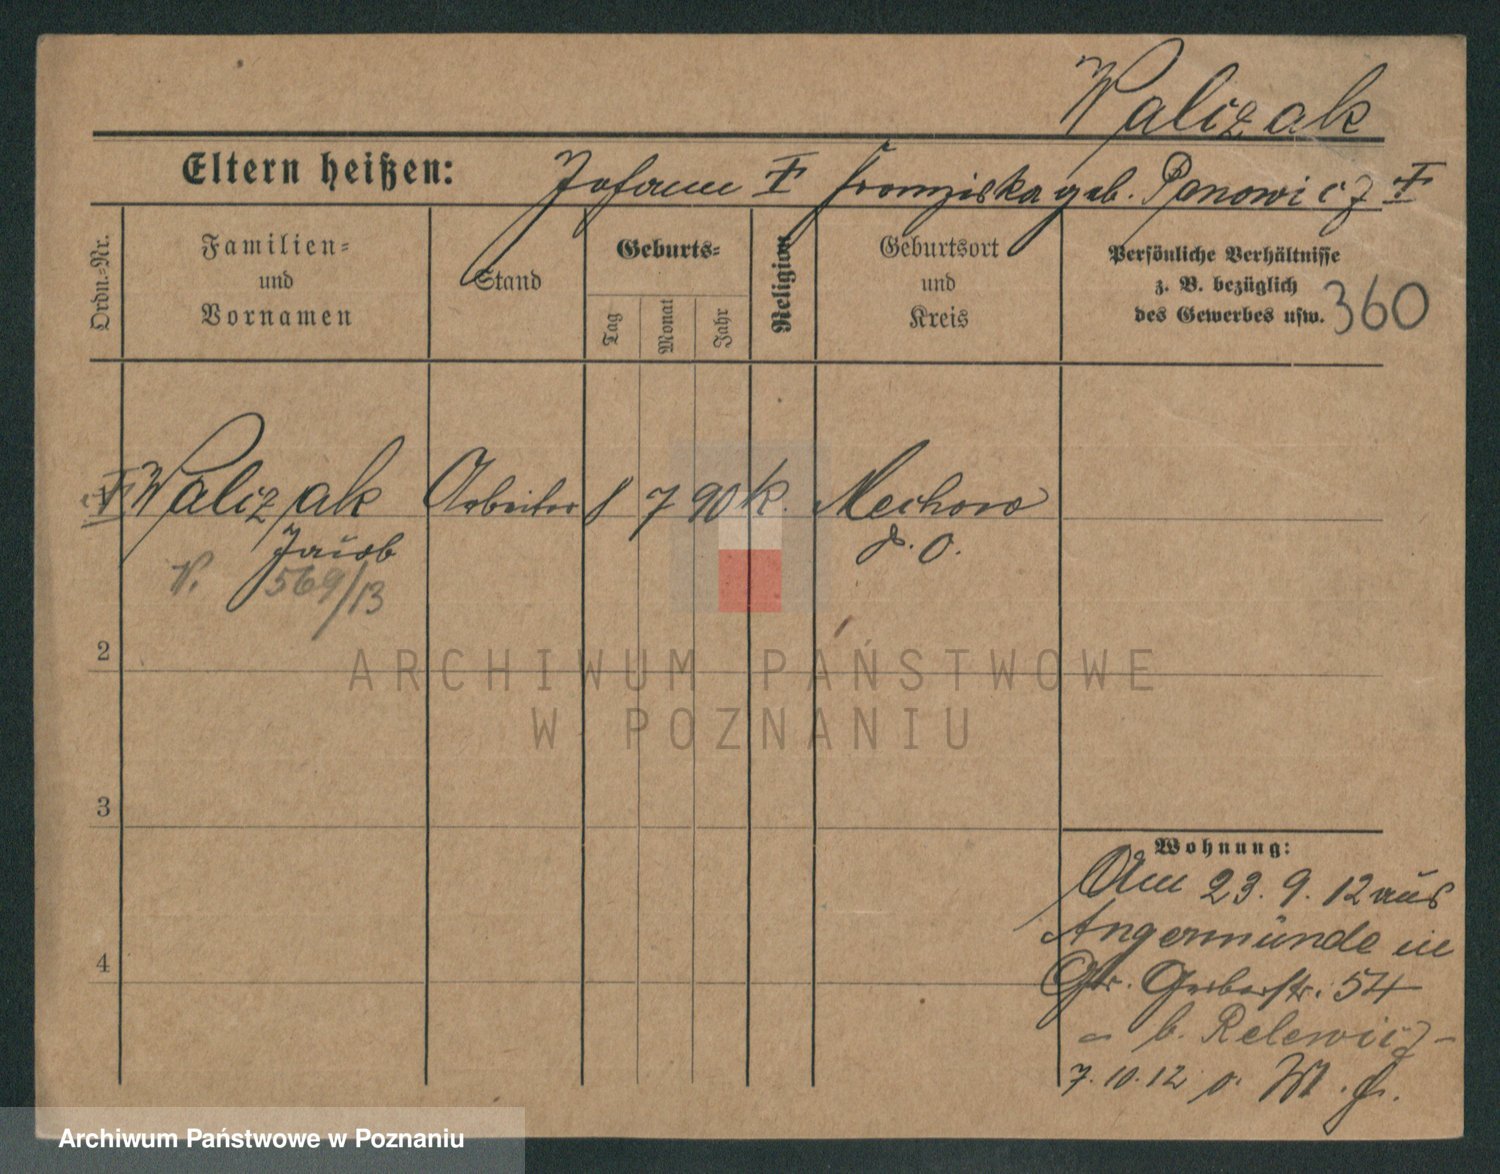 Walczak
Eltern heißen: Johann † Franziska geb. Panowicz †
Ordn.-Nr.
Familien-
und
Vornamen
Stand
Geburts-
Tag
Monat
Jahr
Religion
Geburtsort
und
Kreis
Persönliche Verhältnisse
z. B. bezüglich
des Gewerbes usw. 360
Walczak Arbeiter 8 7 90 k. Mechowo
Jacob
P. O.
V. 569/13
2
3
4
Wohnung:
Am 23. 9. 12 aus
Angermünde in
Gr. Gerberstr. 54
b. Relewicz
7. 10. 12 v.
ARCHIWUM PAŃSTWOWE
W POZNANIU
Archiwum Państwowe w Poznaniu